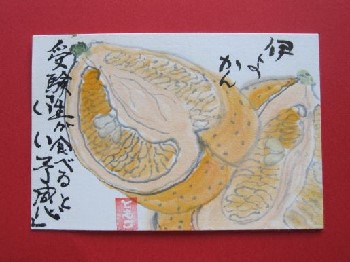 伊よかん
受験生が食べると
いい予感